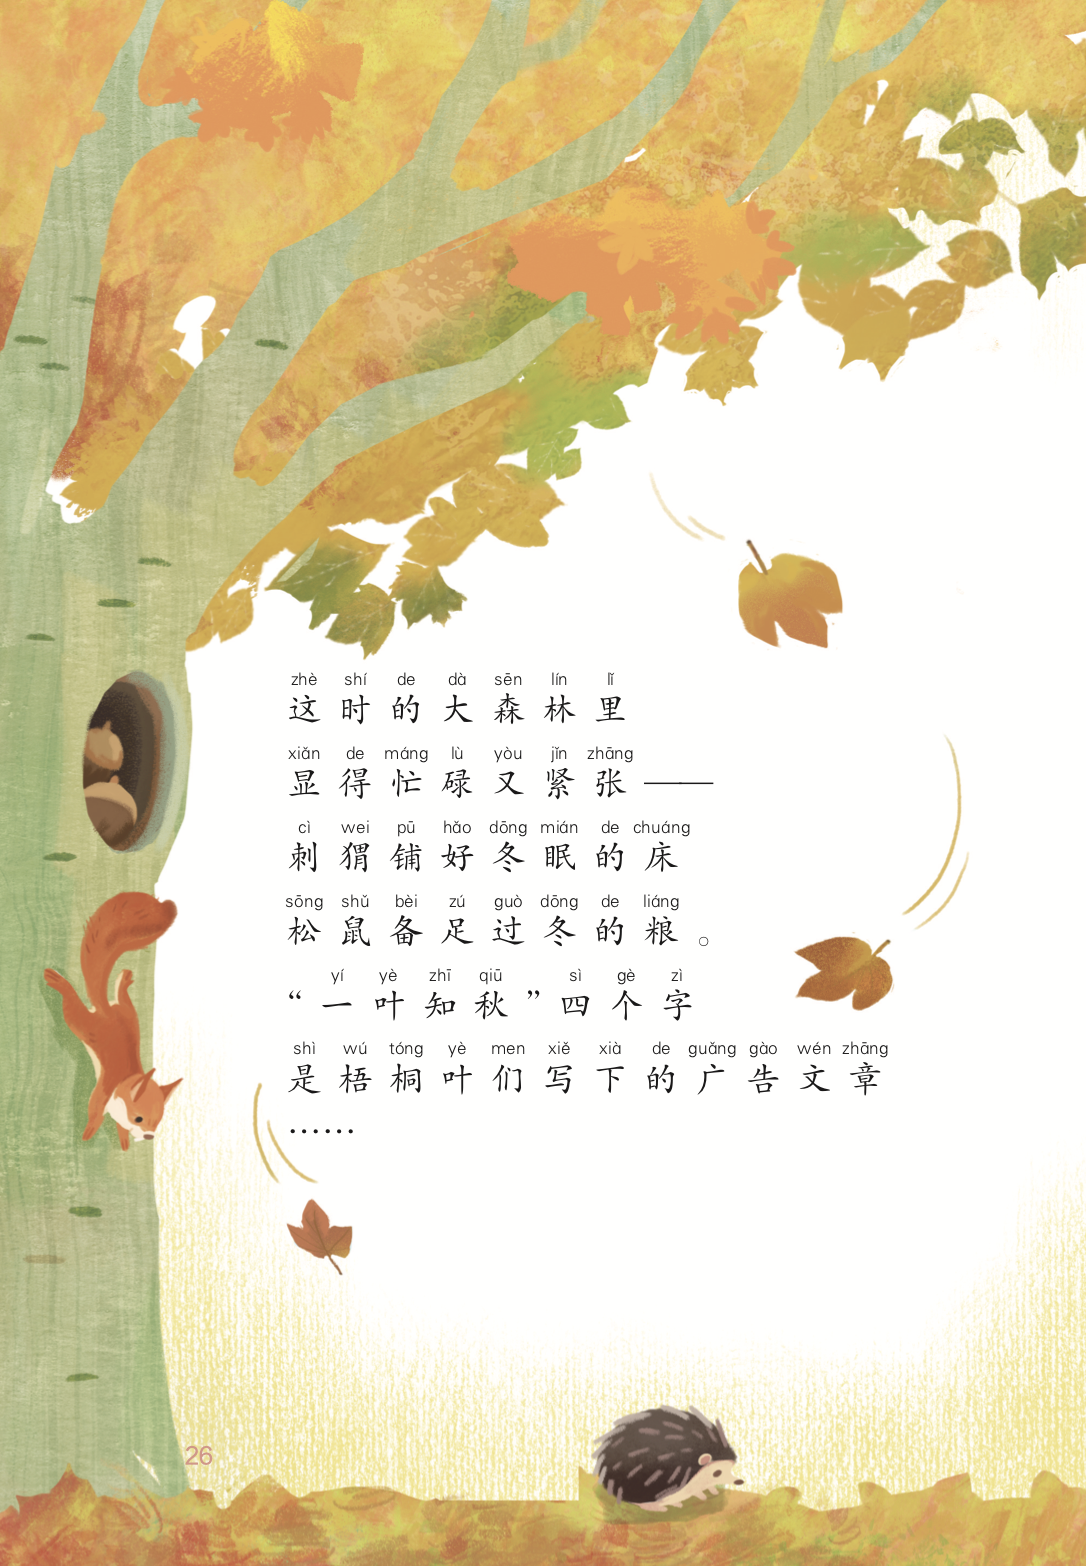 zhè shí de dà sēn lín lǐ
这时的大森林里
xiǎn de máng lù yòu jǐn zhāng
显得忙碌又紧张——
cì wei pū hǎo dōng mián de chuáng
刺猬铺好冬眠的床
sōng shǔ bèi zú guò dōng de liáng
松鼠备足过冬的粮。
yí yè zhī qiū sì gè zì
“一叶知秋”四个字
shì wú tóng yè men xiě xià de guǎng gào wén zhāng
是梧桐叶们写下的广告文章
……
26